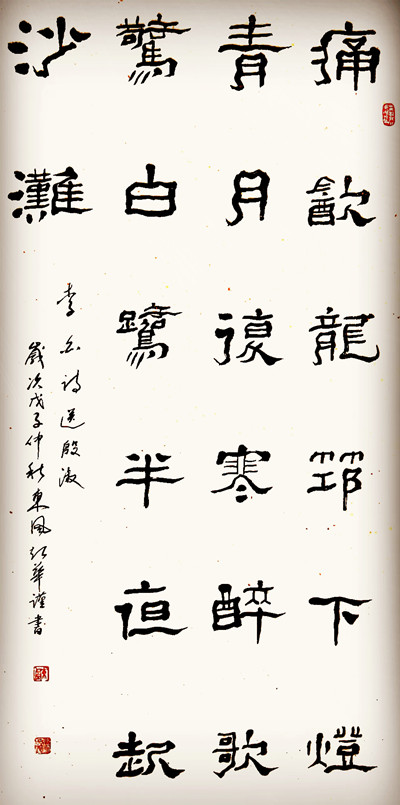 痛㱃龍筇下燈
青月復寒醉歌
驚白鷺半夜起
沙灘
李白詩送殷淑
歲次戊子仲秋東風華謹書